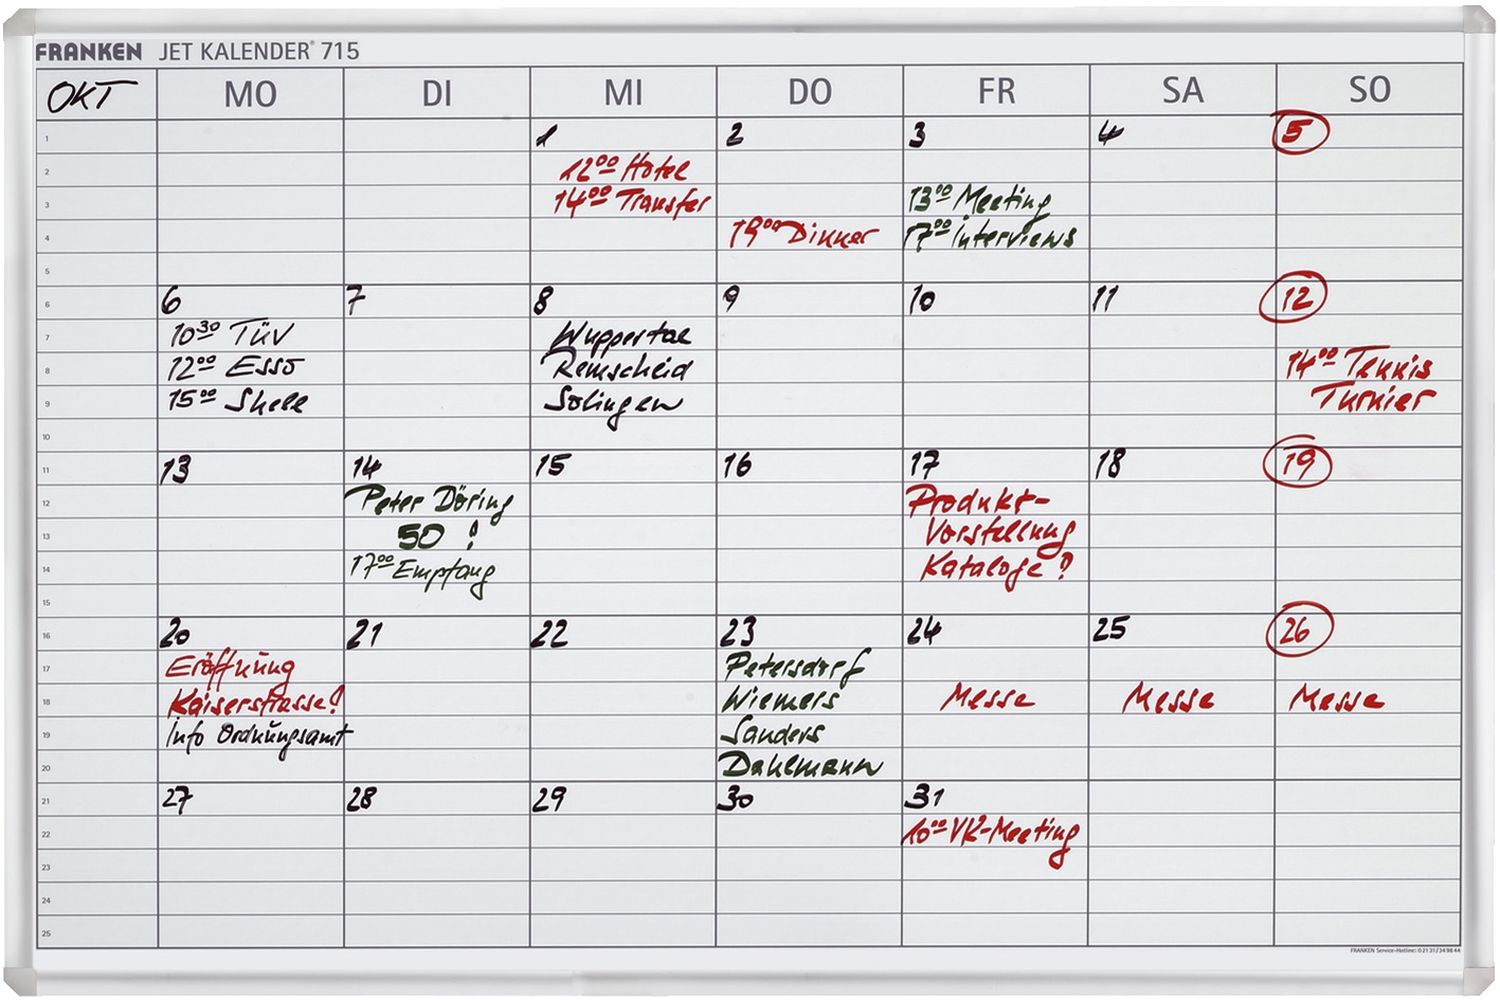 FRANKEN JET KALENDER® 715
OKT MO DI MI DO FR SA SO
1 1 2 3 4 5
2 12⁰⁰ Hotel
3 14⁰⁰ Transfer 13⁰⁰ Meeting
4 19⁰⁰ Dinner 17⁰⁰ Interviews
5
6 6 7 8 9 10 11 12
7 10³⁰ TÜV Wuppertal
8 12⁰⁰ Esso Remscheid 14⁰⁰ Tennis
9 15⁰⁰ Shell Solingen Turnier
10
11 13 14 15 16 17 18 19
12 Peter Döring Produkt-
13 50 ! Vorstellung
14 17⁰⁰ Empfang Kataloge?
15
16 20 21 22 23 24 25 26
17 Eröffnung Petersdorf
18 Kaiserstrasse! Wiemers Messe Messe Messe
19 Info Ordnungsamt Sanders
20 Dahlmann
21 27 28 29 30 31
22 10⁰⁰ VK-Meeting
23
24
25
FRANKEN Service-Hotline: 0 21 31 / 34 98 44